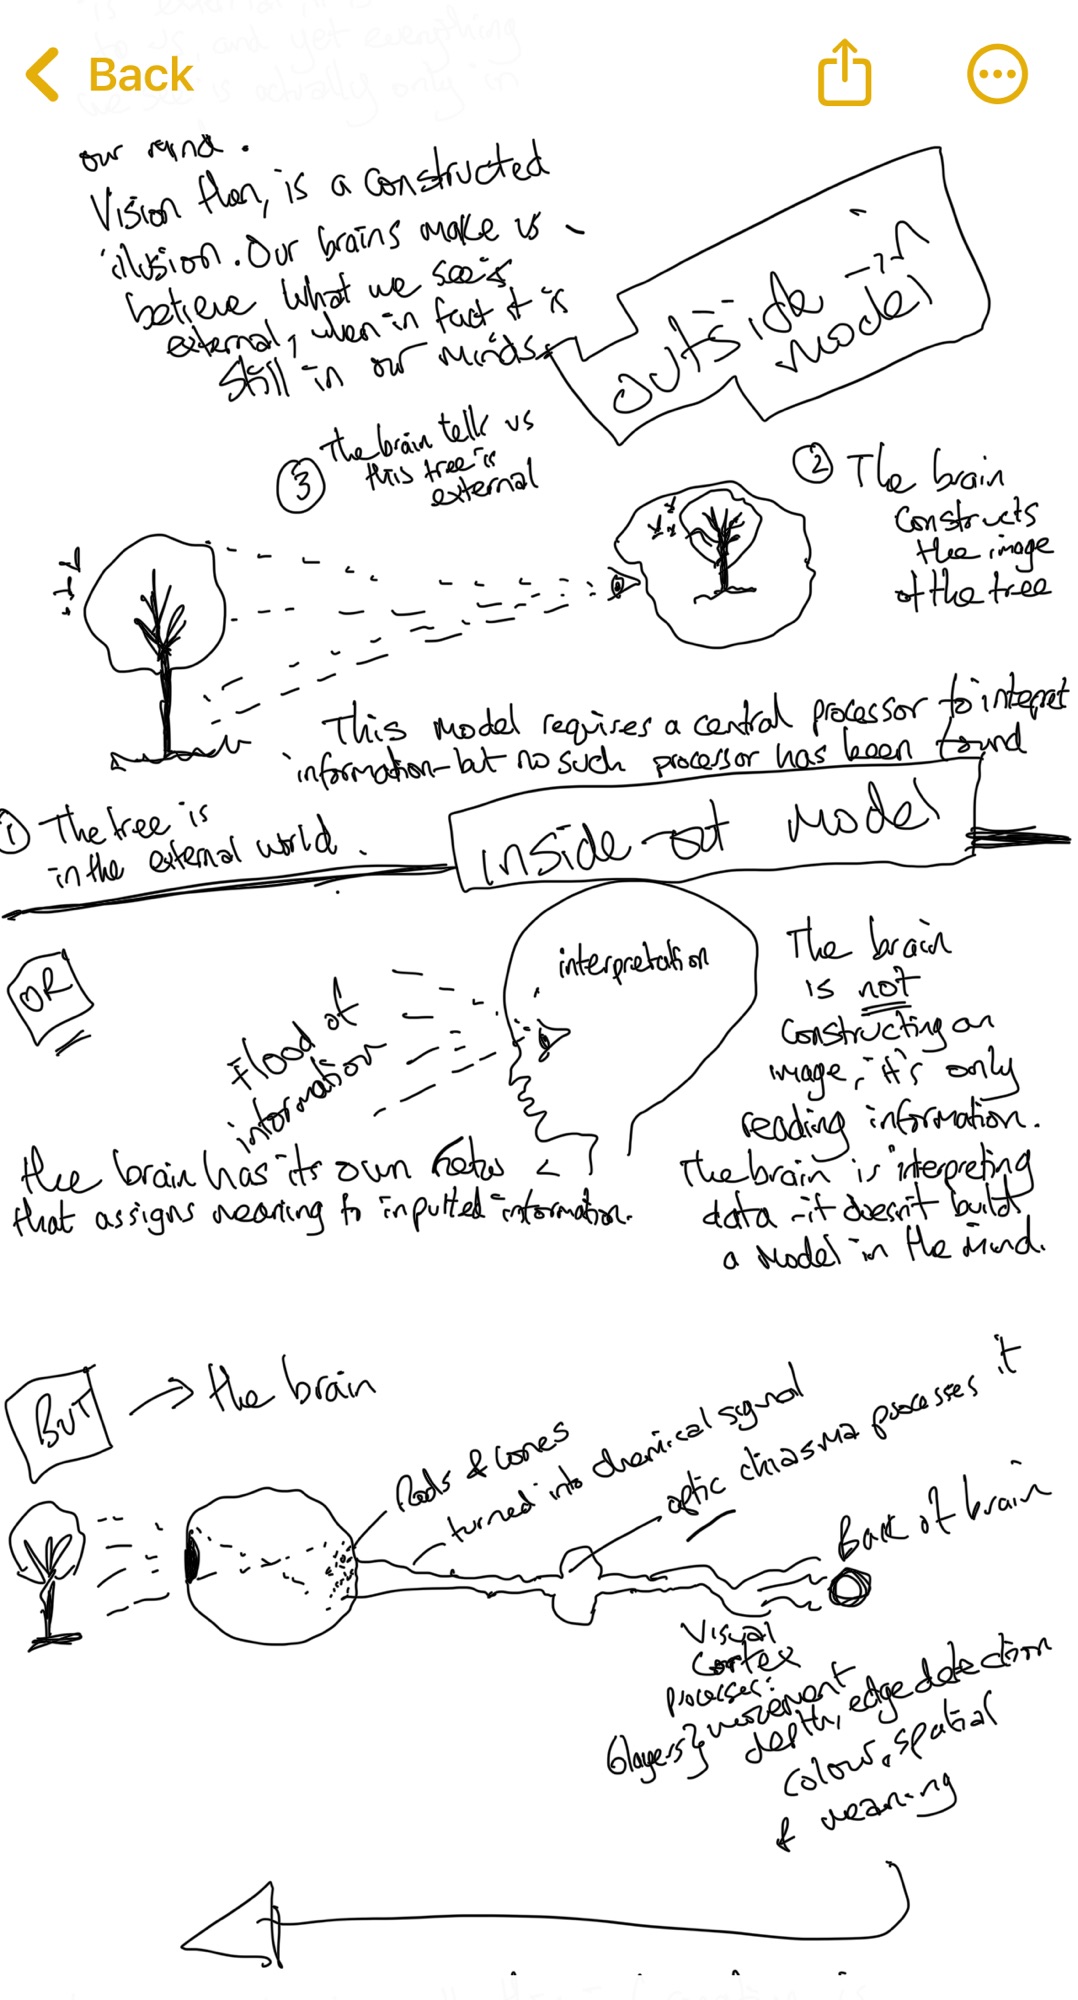 Back
to us, and yet everything
we see is actually only in
our mind.
Vision then, is a constructed
illusion. Our brains make us
believe what we see is
external, when in fact it is
still in our minds.
outside-in
model
③ The brain tells us
this tree is
external
② The brain
constructs
the image
of the tree
This model requires a central processor to interpret
information - but no such processor has been found
① The tree is
in the external world.
inside-out model
OR
Flood of
information
interpretation
The brain
is not
constructing an
image, it's only
reading information.
The brain is interpreting
data - it doesn't build
a model in the mind.
the brain has its own
that assigns meaning to inputted information.
BUT → the brain
Rods & cones
turned into chemical signal
optic chiasma processes it
Back of brain
Visual
Cortex
processes:
6 layers } movement
depth, edge detection
colour, spatial
& meaning